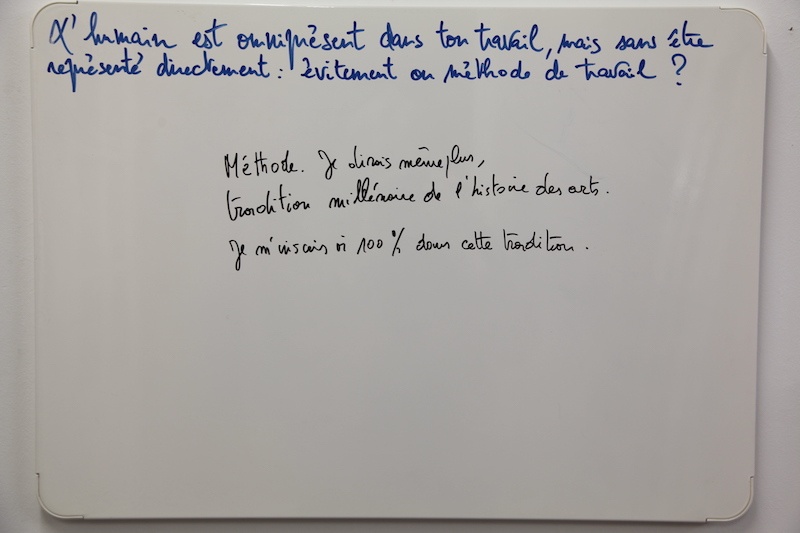 L'humain est omniprésent dans ton travail, mais sans être
représenté directement : évitement ou méthode de travail ?
Méthode. Je dirais même plus,
tradition millénaire de l'histoire des arts.
Je m'inscris à 100 % dans cette tradition.